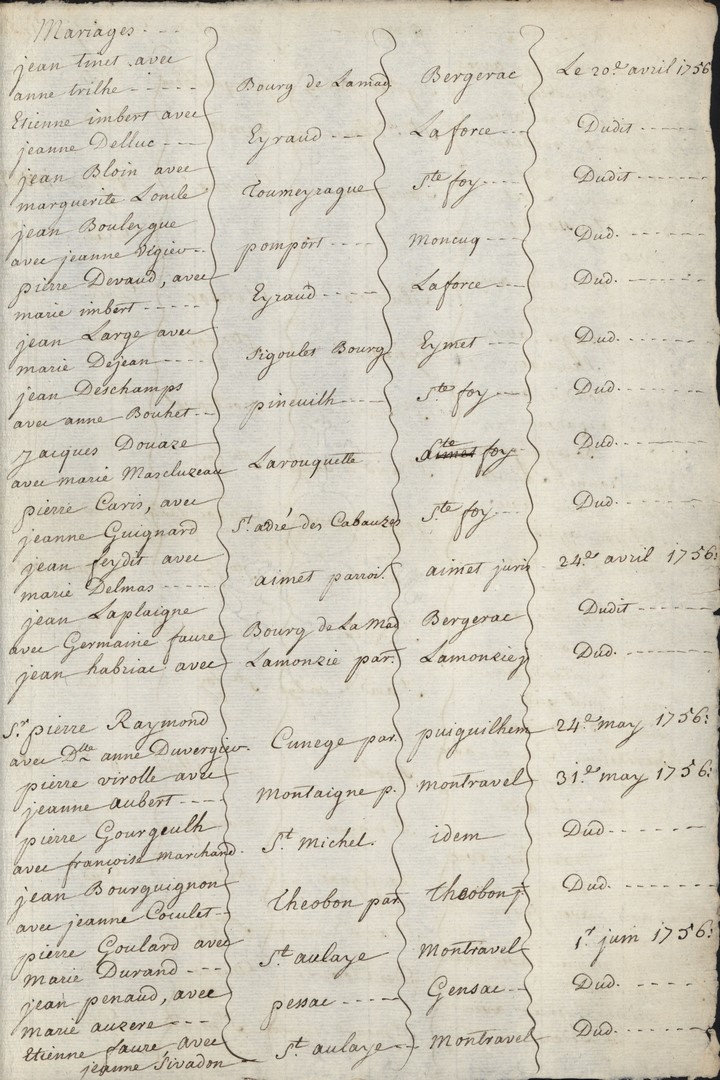 Mariages - - -
jean tinet avec
anne trilhe - - - - - Bourg de Lamad. Bergerac Le 20.e avril 1756
Etienne imbert avec
jeanne Delluc - - - Eyraud - - - Laforce - - - Dudit - - - - -
jean Bloin avec
marguerite Loncle Toumeyrague Ste foy - - - Dudit - - - - -
jean Bouleygue
avec jeanne Vigier - - pomport - - - - Moncuq - - - Dud. - - - - -
pierre Devaud, avec
marie imbert - - - - - Eyraud - - - - Laforce - - - Dud. - - - - -
jean Large avec
marie Dejean - - - - Sigoules Bourg Eymet - - - Dud. - - - - -
jean Deschamps
avec anne Bouhet - - pineuilh - - - - Ste foy - - - Dud. - - - - -
Jacques Douaze
avec marie Mascluzeau Larouquette Ste foy - Dud. - - - - -
pierre Caris, avec
jeanne Guignard St. adré des Cabauzes Ste foy - - - Dud. - - - - -
jean feydit avec
marie Delmas - - - - aimet parroi. aimet juris 24.e avril 1756:
jean Laplaigne
avec Germaine faure Bourg de La Mad Bergerac Dudit - - - - -
jean habriac avec Lamonzie par. Lamonzie j Dud. - - - - -
Sr. pierre Raymond
avec Dlle anne Duvergier. Cunege par. puiguilhem 24.e may 1756:
pierre virolle avec
jeanne aubert - - - - Montaigne p. montravel 31.e may 1756:
pierre Gourgeulh
avec françoise marchand. St. Michel. idem Dud. - - - - -
jean Bourguignon
avec jeanne Coculet - - Theobon par Theobon j. Dud. - - - - -
pierre Goulard avec
Marie Durand - - - St. aulaye Montravel 1.r juin 1756:
jean penaud, avec
marie auzere - - - pessac - - - - Gensac - - Dud. - - - - -
Etienne faure avec
jeanne Sivadon - St. aulaye - - Montravel Dud. - - - - -